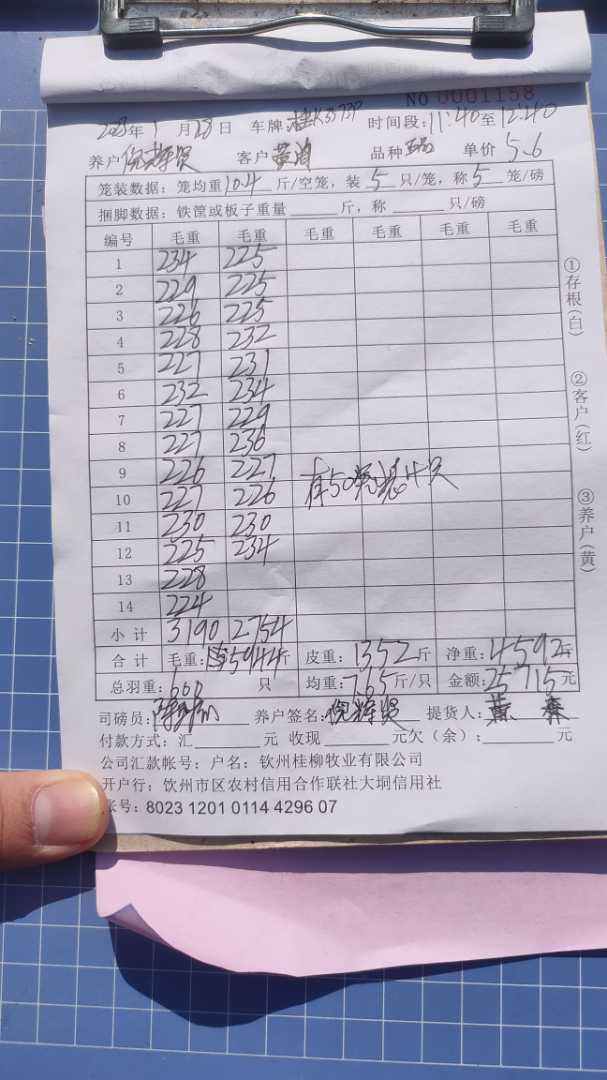 No 0001158
2023年 1 月 28 日 车牌 桂K3573P 时间段:11:40至12:40
养户 倪辉贤 客户 品种 单价 5.6
笼装数据: 笼均重10.4斤/空笼,装 5 只/笼,称 5 笼/磅
捆脚数据: 铁筐或板子重量 斤,称 只/磅
编号 毛重 毛重 毛重 毛重 毛重 毛重
1 234 225
2 229 225
3 226 225
4 228 232
5 227 231
6 232 234
7 227 229
8 227 236
9 226 227
10 227 226
有50笼 4只
11 230 230
12 225 234
13 228
14 224
小 计 3190 2754
合 计 毛重:5944斤 皮重:1352斤 净重:4592斤
总羽重:600 只 均重:7.65斤/只 金额:25715元
司磅员: 养户签名:倪辉贤 提货人:
付款方式:汇 元 收现 元欠(余): 元
公司汇款帐号: 户名: 钦州桂柳牧业有限公司
开户行: 钦州市区农村信用合作联社大垌信用社
帐号: 8023 1201 0114 4296 07
①存根(白)
②客户(红)
③养户(黄)